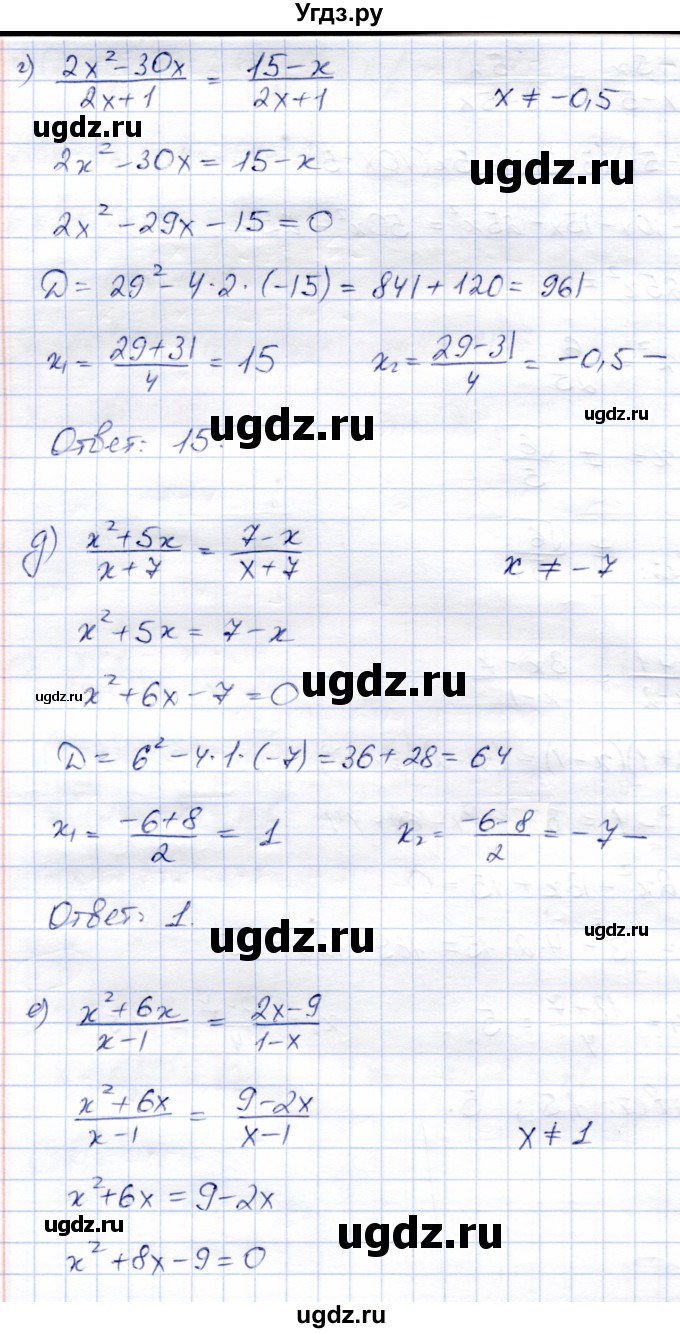 Угдз.ру
г) (2x²-30x)/(2x+1) = (15-x)/(2x+1)    x ≠ -0,5
ugdz.ru
ugdz.ru
2x²-30x = 15-x
2x²-29x-15=0
D = 29²-4·2·(-15) = 841+120 = 961
x₁ = (29+31)/4 = 15    x₂ = (29-31)/4 = -0,5 —
ugdz.ru
ugdz.ru
Ответ: 15.
д) (x²+5x)/(x+7) = (7-x)/(x+7)    x ≠ -7
x²+5x = 7-x
ugdz.ru
ugdz.ru
x²+6x-7=0
D = 6²-4·1·(-7) = 36+28 = 64
x₁ = (-6+8)/2 = 1    x₂ = (-6-8)/2 = -7 —
Ответ: 1.
ugdz.ru
ugdz.ru
е) (x²+6x)/(x-1) = (2x-9)/(1-x)
(x²+6x)/(x-1) = (9-2x)/(x-1)    x ≠ 1
x²+6x = 9-2x
ugdz.ru
ugdz.ru
x²+8x-9=0
ugdz.ru